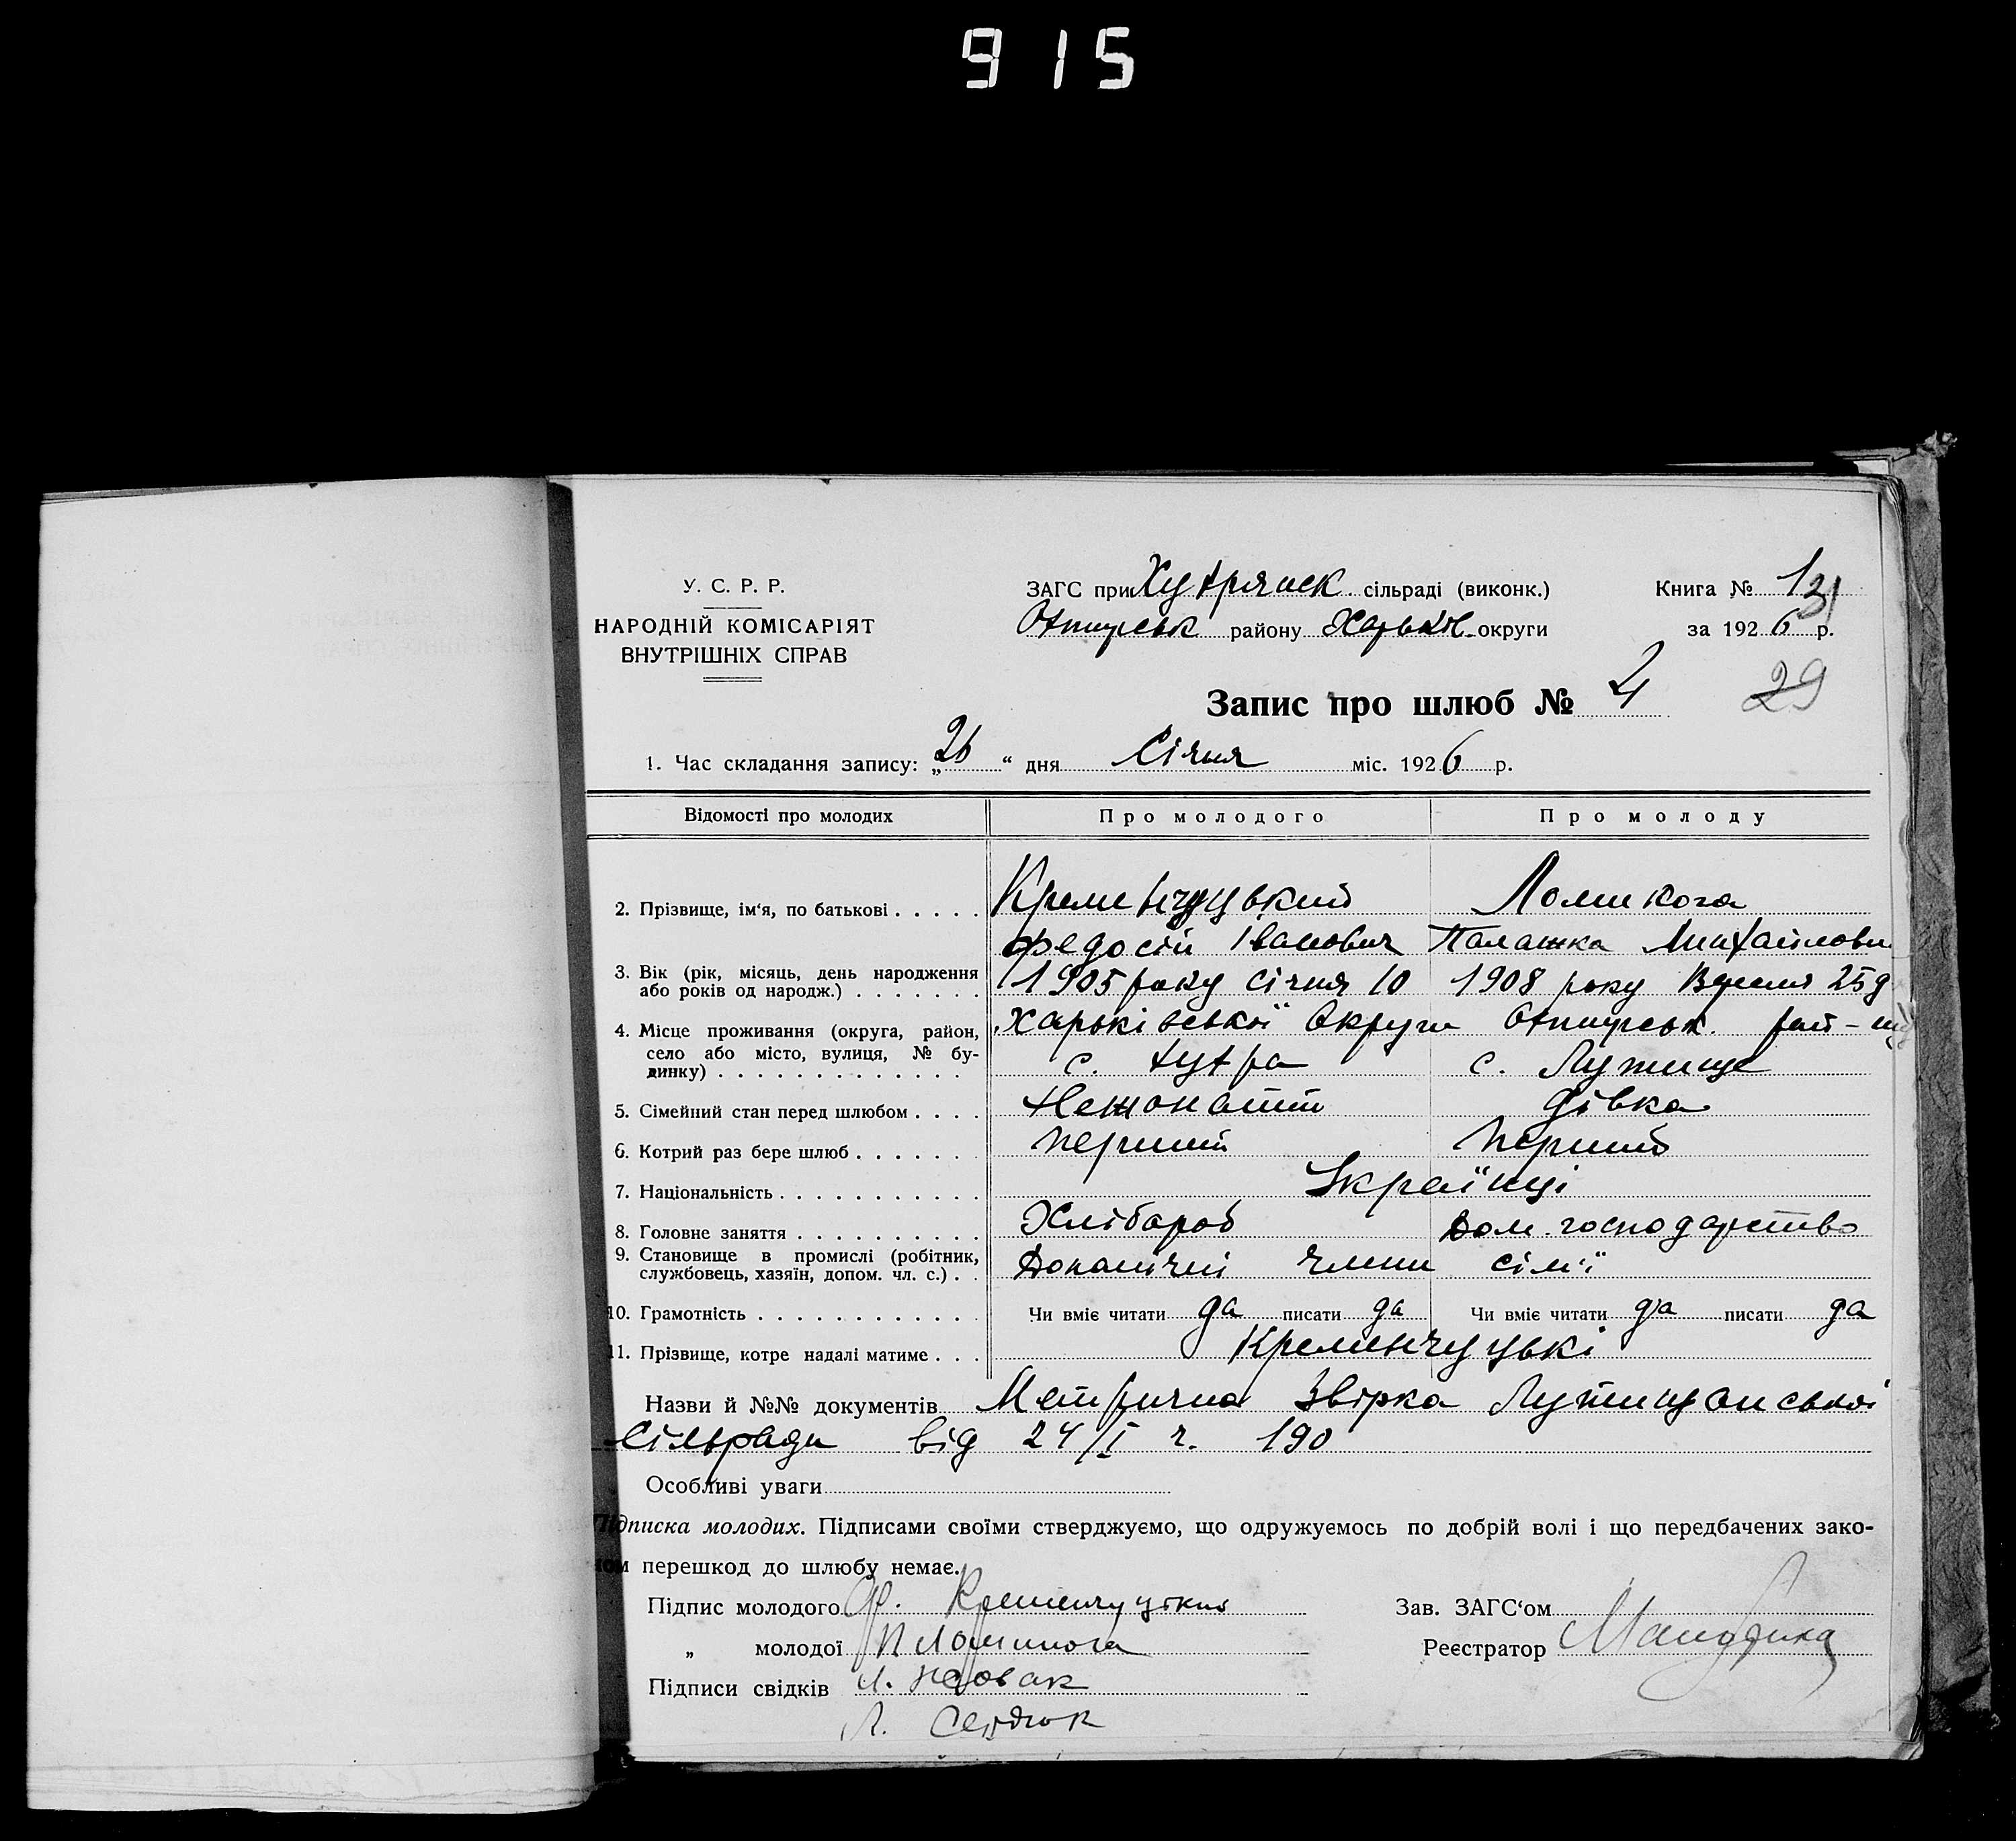 915
У. С. Р. Р.
НАРОДНІЙ КОМІСАРІЯТ
ВНУТРІШНІХ СПРАВ
ЗАГС при Хутрянск. сільраді (виконк.)
Охтирськ району Харьків. округи
Книга № 1
31
за 1926 р.
Запис про шлюб № 4
29
1. Час складання запису: „26“ дня Січня міс. 1926 р.
Відомості про молодих Про молодого Про молоду
2. Прізвище, ім‘я, по батькові Кременчуцький
Федосій Іванович Палашка Михайловн
3. Вік (рік, місяць, день народження або років од народж.) 1905 року січня 10 1908 року Вересня 25 д
4. Місце проживання (округа, район, Харьківської Округи Охтирськ. рай-ну
село або місто, вулиця, № бу-
динку) с. Хутра с. Лутище
5. Сімейний стан перед шлюбом Нежонатий дівка
6. Котрий раз бере шлюб перший перший
7. Національність Українці
8. Головне заняття Хлібороб Дом. господарство
9. Становище в промислі (робітник,
службовець, хазяїн, допом. чл. с.) Допомічні члени сім'ї
10. Грамотність Чи вміє читати да писати да Чи вміє читати да писати да
11. Прізвище, котре надалі матиме Кременчуцькі
Назви й №№ документів Метрична Звірка Лутищанської
Сільради від 24/I ч. 190
Особливі уваги
Підписка молодих. Підписами своїми стверджуємо, що одружуємось по добрій волі і що передбачених зако-
ном перешкод до шлюбу немає.
Підпис молодого Ф. Кременчуцкий
Зав. ЗАГС‘ом
„ молодої П
Реєстратор
Підписи свідків Новак
Л. Сердюк